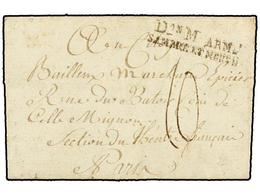 Dᵒⁿ M ARMᵉ
SAMBRE ET MEUSE
Au Ci
Bailleux Marchand Epicier
Rue du Batoir Coin de
Celle Mignon
Section du theatre français
A Paris